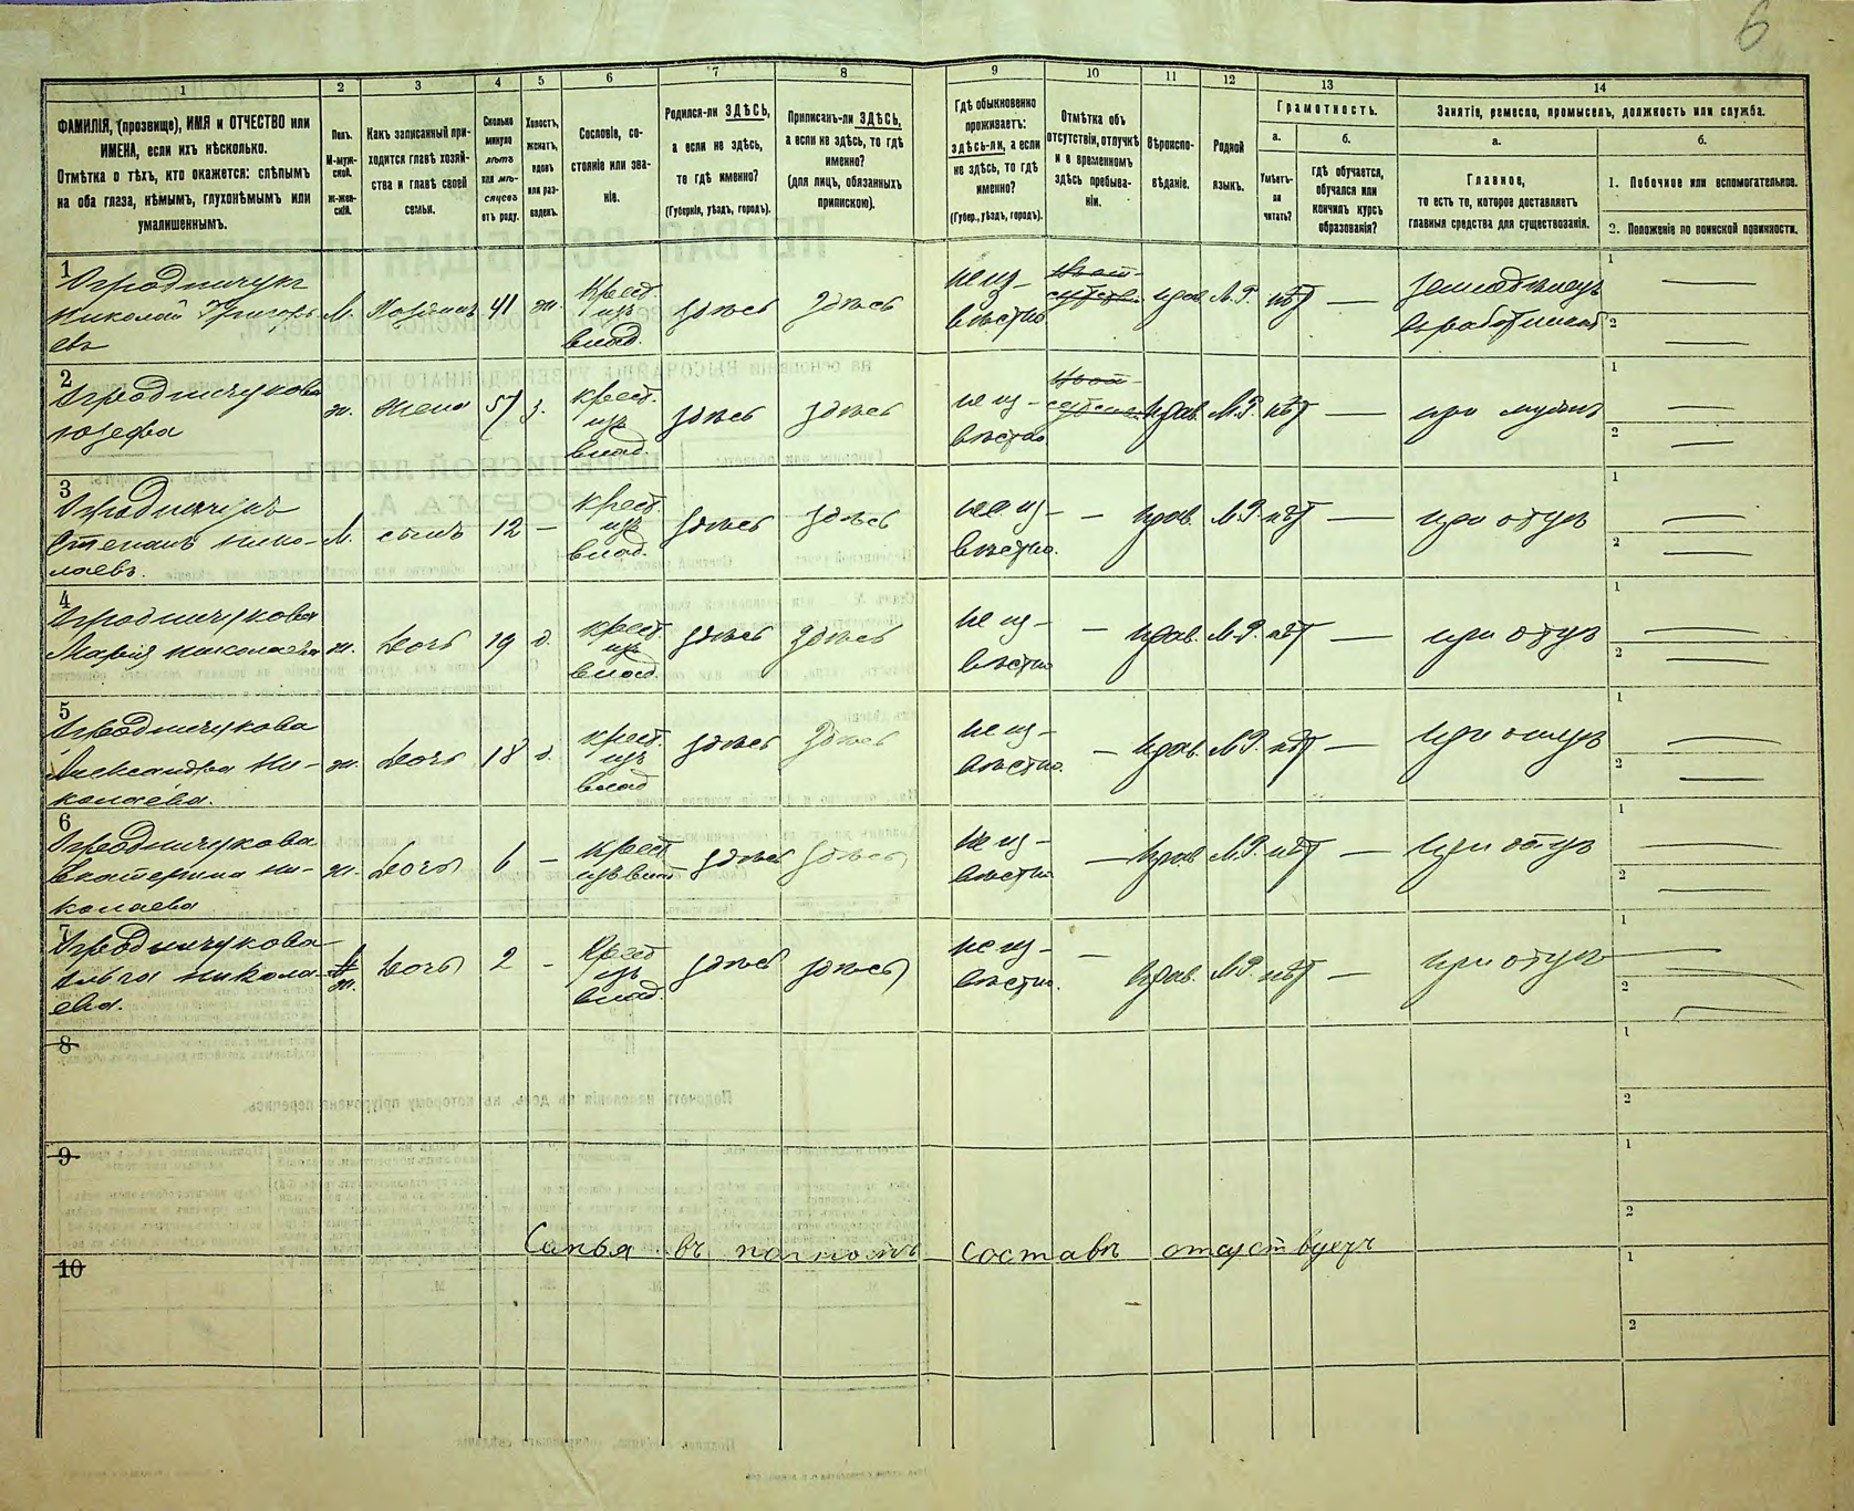 6
1
2
3
4
5
6
7
8
9
10
11
12
13
14
ФАМИЛІЯ, (прозвище), ИМЯ и ОТЧЕСТВО или
ИМЕНА, если ихъ нѣсколько.
Отмѣтка о тѣхъ, кто окажется: слѣпымъ
на оба глаза, нѣмымъ, глухонѣмымъ или
умалишеннымъ.
Полъ.
М-муж-
ской.
ж-жен-
скій.
Какъ записанный при-
ходится главѣ хозяй-
ства и главѣ своей
семьи.
Сколько
минуло
лѣтъ
или мѣ-
сяцевъ
отъ роду.
Холостъ,
женатъ,
вдовъ
или раз-
веденъ.
Сословіе, со-
стояніе или зва-
ніе.
Родился-ли ЗДѢСЬ,
а если не здѣсь,
то гдѣ именно?
(Губернія, уѣздъ, городъ).
Приписанъ-ли ЗДѢСЬ,
а если не здѣсь, то гдѣ
именно?
(для лицъ, обязанныхъ
припискою).
Гдѣ обыкновенно
проживаетъ:
здѣсь-ли, а если
не здѣсь, то гдѣ
именно?
(Губер., уѣздъ, городъ).
Отмѣтка объ
отсутствіи, отлучкѣ
и о временномъ
здѣсь пребыва-
ніи.
Вѣроиспо-
вѣданіе.
Родной
языкъ.
Грамотность.
а.
Умѣетъ-
ли
читать?
б.
гдѣ обучается,
обучался или
кончилъ курсъ
образованія?
Занятіе, ремесло, промыселъ, должность или служба.
а.
Главное,
то есть то, которое доставляетъ
главныя средства для существованія.
б.
1. Побочное или вспомогательное.
2. Положеніе по воинской повинности.
1
Огродничукъ
Николай Григорь
евъ
М. Хозяинъ 41 ж.
Крест.
изъ
влад.
здѣсь здѣсь
неиз-
вѣстно
прав. М.Р. нѣт —
земледѣлецъ
1
2
2
Огродничукова
Юзефа
ж. жена 57 з.
крест.
изъ
влад.
здѣсь здѣсь
неиз-
вѣстно
прав. М.Р. нѣт —
при мужѣ
1
2
3
Огродничукъ
Степанъ Нико-
лаевъ.
М. сынъ 12 —
крест.
изъ
влад.
здѣсь здѣсь
неиз-
вѣстно.
— прав. М.Р. нѣт —
при отцѣ
1
2
4
Огродничукова
Марія Николаева
ж. дочь 19 д.
крест.
изъ
влад.
здѣсь здѣсь
неиз-
вѣстно
— прав. М.Р. нѣт —
при отцѣ
1
2
5
Огродничукова
Александра Ни-
колаева.
ж. дочь 18 д.
крест.
изъ
влад
здѣсь здѣсь
неиз-
вѣстно.
— прав. М.Р. нѣт —
при отцѣ
1
2
6
Огродничукова
Екатерина Ни-
колаева
ж. дочь 6 —
крест
изъ влад
здѣсь здѣсь
неиз-
вѣстно
— прав. М.Р. нѣт —
при отцѣ
1
2
7
Огродничукова
Ольга Никола-
ева.
ж. дочь 2 —
Крест
изъ
влад.
здѣсь здѣсь
неиз-
вѣстно.
— прав. М.Р. нѣт —
при отцѣ
1
2
8
1
2
9
1
2
Семья въ полномъ составѣ отсутствуетъ
10
1
2